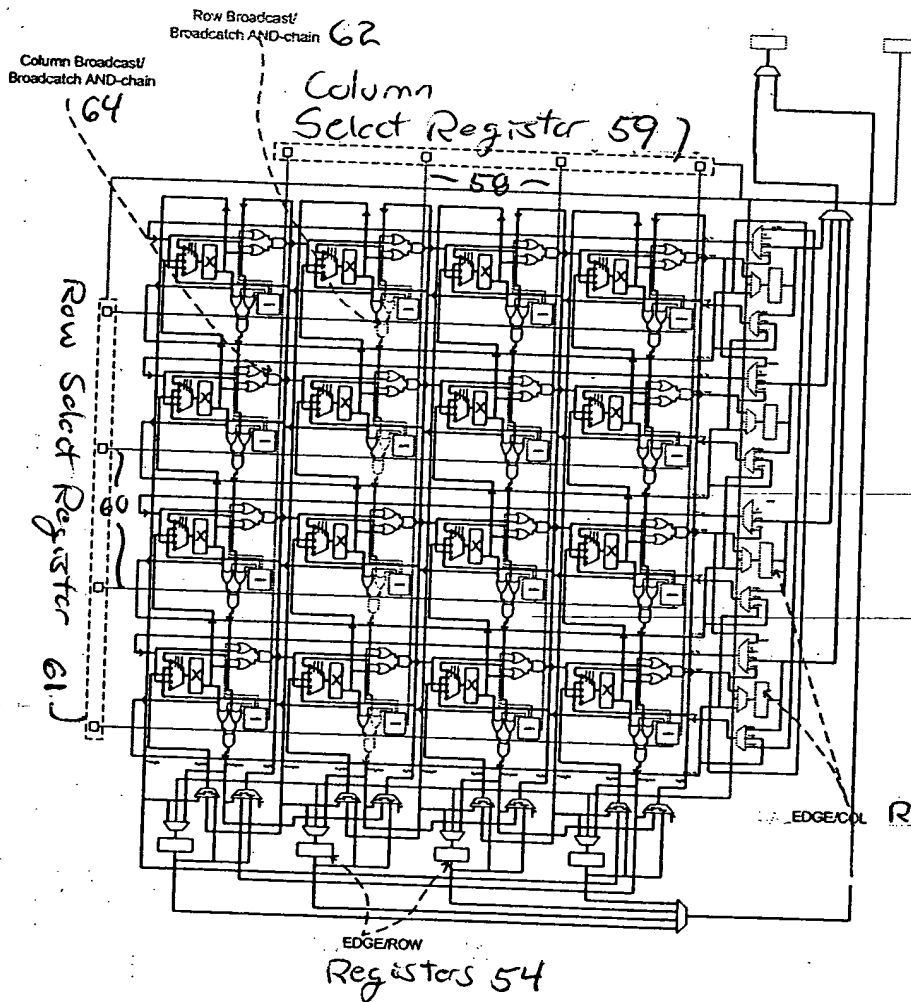 Row Broadcast/
Broadcatch AND-chain 62
Column Broadcast/
Broadcatch AND-chain
64
Column
Select Register 59
58
Row Select Register 61
60
EDGE/COL R
EDGE/ROW
Registers 54